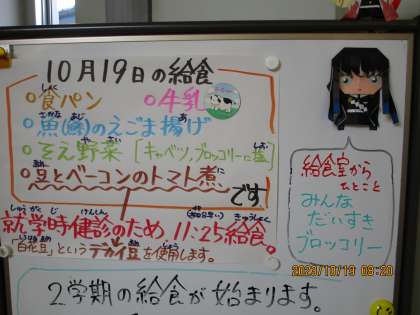 10月19日の給食
○食パン ○牛乳
○魚(鮭)のえごま揚げ
○そえ野菜［キャベツ,ブロッコリーに塩］
○豆とベーコンのトマト煮
です
就学時健診のため 11:25給食。
「白花豆」というデカイ豆を使用します。
2学期の給食が始まります。
給食室から
ひとこと
みんな
だいすき
ブロッコリー
2023/10/19 08:20